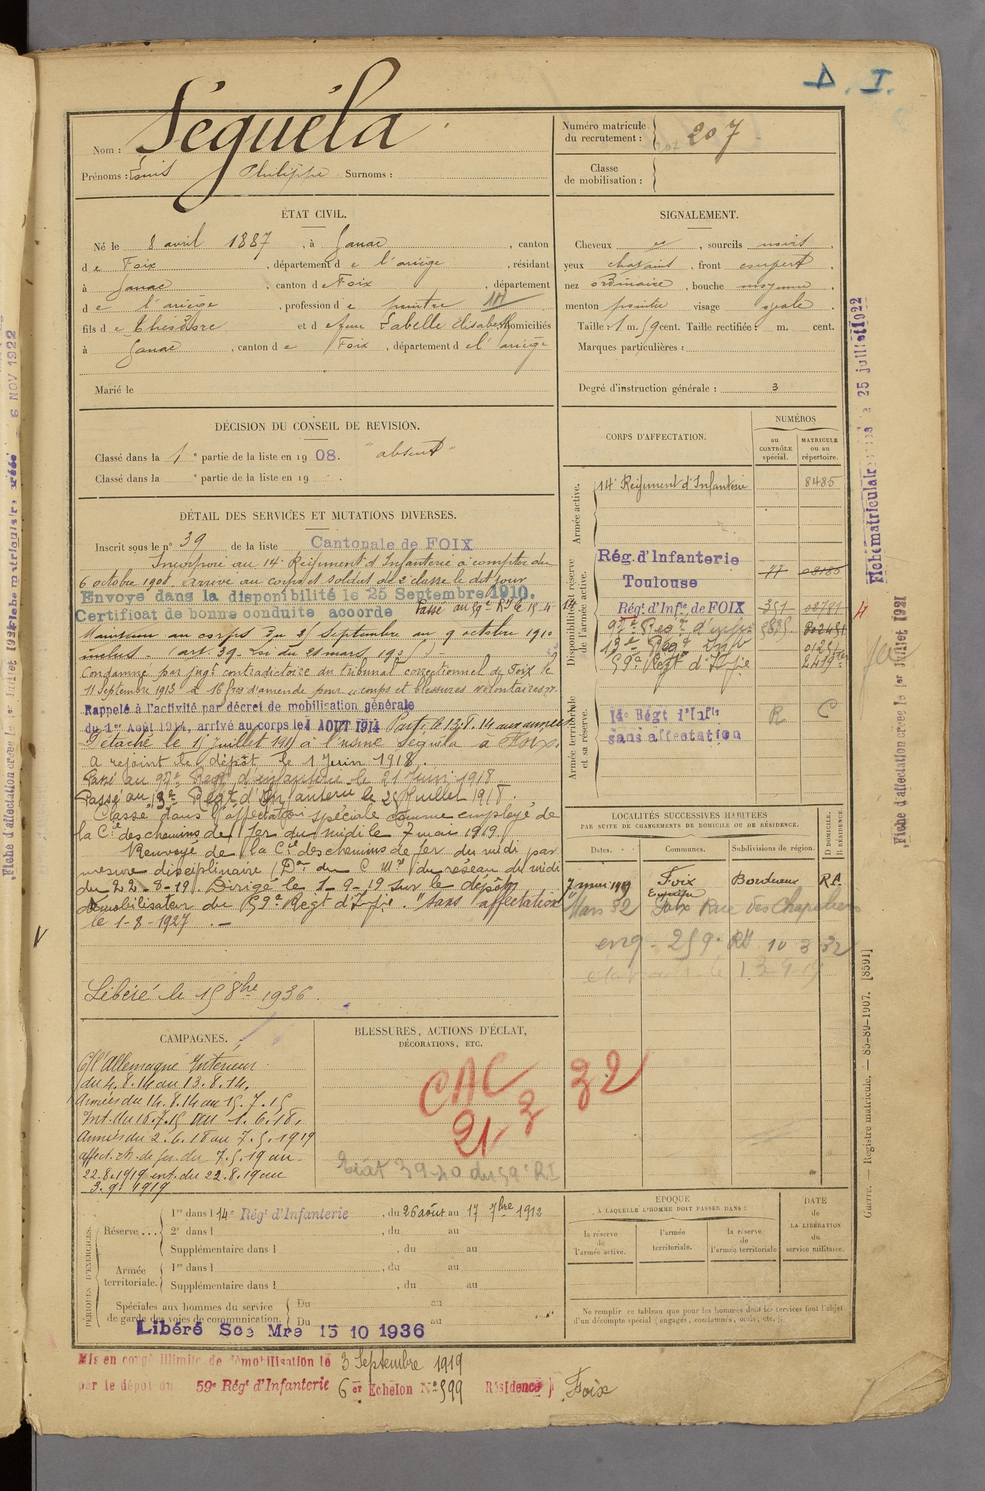 I. D.
Nom : Séguéla
Prénoms : Louis Philippe Surnoms :
Numéro matricule du recrutement : 207
Classe de mobilisation :
ÉTAT CIVIL.
Né le 8 avril 1887, à Ganac, canton
de Foix, département de l'ariège, résidant
à Ganac, canton de Foix, département
de l'ariège, profession de peintre
fils de et de Elisabeth domiciliés
à Ganac, canton de Foix, département de l'ariège
Marié le
SIGNALEMENT.
Cheveux et, sourcils noirs,
yeux chatains, front couvert,
nez ordinaire, bouche moyenne,
menton pointu visage ovale
Taille : 1 m. 59 cent. Taille rectifiée : m. cent.
Marques particulières :
Degré d'instruction générale : 3
DÉCISION DU CONSEIL DE REVISION.
Classé dans la 1e partie de la liste en 1908. "absent"
Classé dans la e partie de la liste en 19 .
DÉTAIL DES SERVICES ET MUTATIONS DIVERSES.
Inscrit sous le n° 39 de la liste Cantonale de FOIX
Incorporé au 14e Régiment d'Infanterie à compter du
6 octobre 1908. Arrivé au corps et soldat de 2e classe le dit jour
Envoyé dans la disponibilité le 25 Septembre 1910.
Certificat de bonne conduite accordé Passé au 59e RI le 15-4-14
Maintenu au corps du 25 Septembre au 9 octobre 1910
inclus. (art 39. Loi du 21 mars 1905)
Condamné par jugt contradictoire du tribunal correctionnel de Foix le
11 septembre 1913 à 16 frcs d'amende pour coups et blessures volontaires.
Rappelé à l'activité par décret de mobilisation générale
du 1er Août 1914, arrivé au corps le AOUT 1914 Parti le 13.8.14 aux armées
Détaché le 15 juillet 1915 à l'usine Seguela à Foix.
A rejoint le dépôt le 1 Juin 1918.
Passé au Regt d'infanterie le 21 Juin 1918
Passé au Regt d'Infanterie le 25 Juillet 1918.
Classé dans l'affectation spéciale comme employé de
la Cie des chemins de fer du midi le 7 mai 1919.
Renvoyé de la Cie des chemins de fer du midi par
mesure disciplinaire du réseau du midi
du 22-8-19. Dirigé le 1-9-19 sur le dépôt
démobilisateur du 59e Regt d'Infie. "Sans affectation"
le 1-8-1927.
Libéré le 15 8bre 1936.
CORPS D'AFFECTATION.
NUMÉROS
au CONTRÔLE spécial.
MATRICULE ou au répertoire.
Armée active.
14e Régiment d'Infanterie 8485
Disponibilité et réserve de l'armée active.
Rég. d'Infanterie
Toulouse
Régt d'Infie de FOIX 351
59e Regt d'Infie
Armée territoriale et sa réserve.
14e Régt d'Infie R C
sans affectation
LOCALITÉS SUCCESSIVES HABITÉES
PAR SUITE DE CHANGEMENTS DE DOMICILE OU DE RÉSIDENCE.
Dates. Communes. Subdivisions de région. D DOMICILE. R RÉSIDENCE
7 mai 1919 Foix Bordeaux
Mars 32 Foix Rue des Chapeliers
10 3 32
CAMPAGNES.
C/ l'Allemagne Intérieur
du 4.8.14 au 13.8.14.
Armées du 14.8.14 au 15.7.15
Int. du 16.7.15 au 1.6.18.
Armées du 2.6.18 au 7.5.1919
affect. ch. de fer. du 7.5.19 au
22.8.1919 int. du 22.8.19 au
3.9.1919
BLESSURES, ACTIONS D'ÉCLAT,
DÉCORATIONS, ETC.
CAC
21 3 32
PÉRIODES D'EXERCICES.
Réserve... 1re dans l 14e Régt d'Infanterie, du 26 août au 17 7bre 1912
2e dans l , du au
Supplémentaire dans l , du au
Armée territoriale. 1re dans l , du au
Supplémentaire dans l , du au
Spéciales aux hommes du service Du au
de garde des voies de communication. Du au
Libéré Sce Mre 15 10 1936
ÉPOQUE
À LAQUELLE L'HOMME DOIT PASSER DANS :
la réserve de l'armée active.
l'armée territoriale.
la réserve de l'armée territoriale
DATE de LA LIBÉRATION du service militaire.
Ne remplir ce tableau que pour les hommes dont les services font l'objet
d'un décompte spécial (engagés, condamnés, omis, etc.).
Mis en congé illimité de démobilisation le 3 Septembre 1919
par le dépôt du 59e Régt d'Infanterie 6e Echelon No 599 Résidence Foix
Fiche matriculaire 25 juillet 1922
Fiche d'affectation créée le 1er Juillet 1921
Guerre. — Registre matricule. — 85-89-1907. [8591]
6 NOV 1922